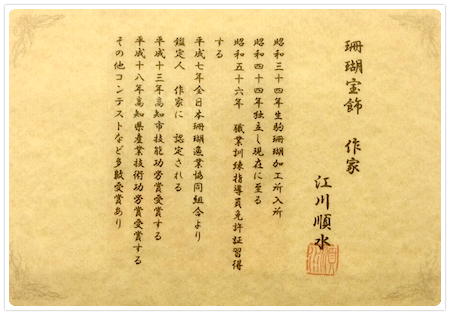 珊瑚宝飾　作家
江川順水
昭和三十四年生駒珊瑚加工所入所
昭和四十四年独立し現在に至る
昭和五十六年　職業訓練指導員免許証習得
する
平成七年全日本珊瑚漁業協同組合より
鑑定人　作家に　認定される
平成十三年高知市技能功労賞受賞する
平成十八年高知県産業技術功労賞受賞する
その他コンテストなど多数受賞あり